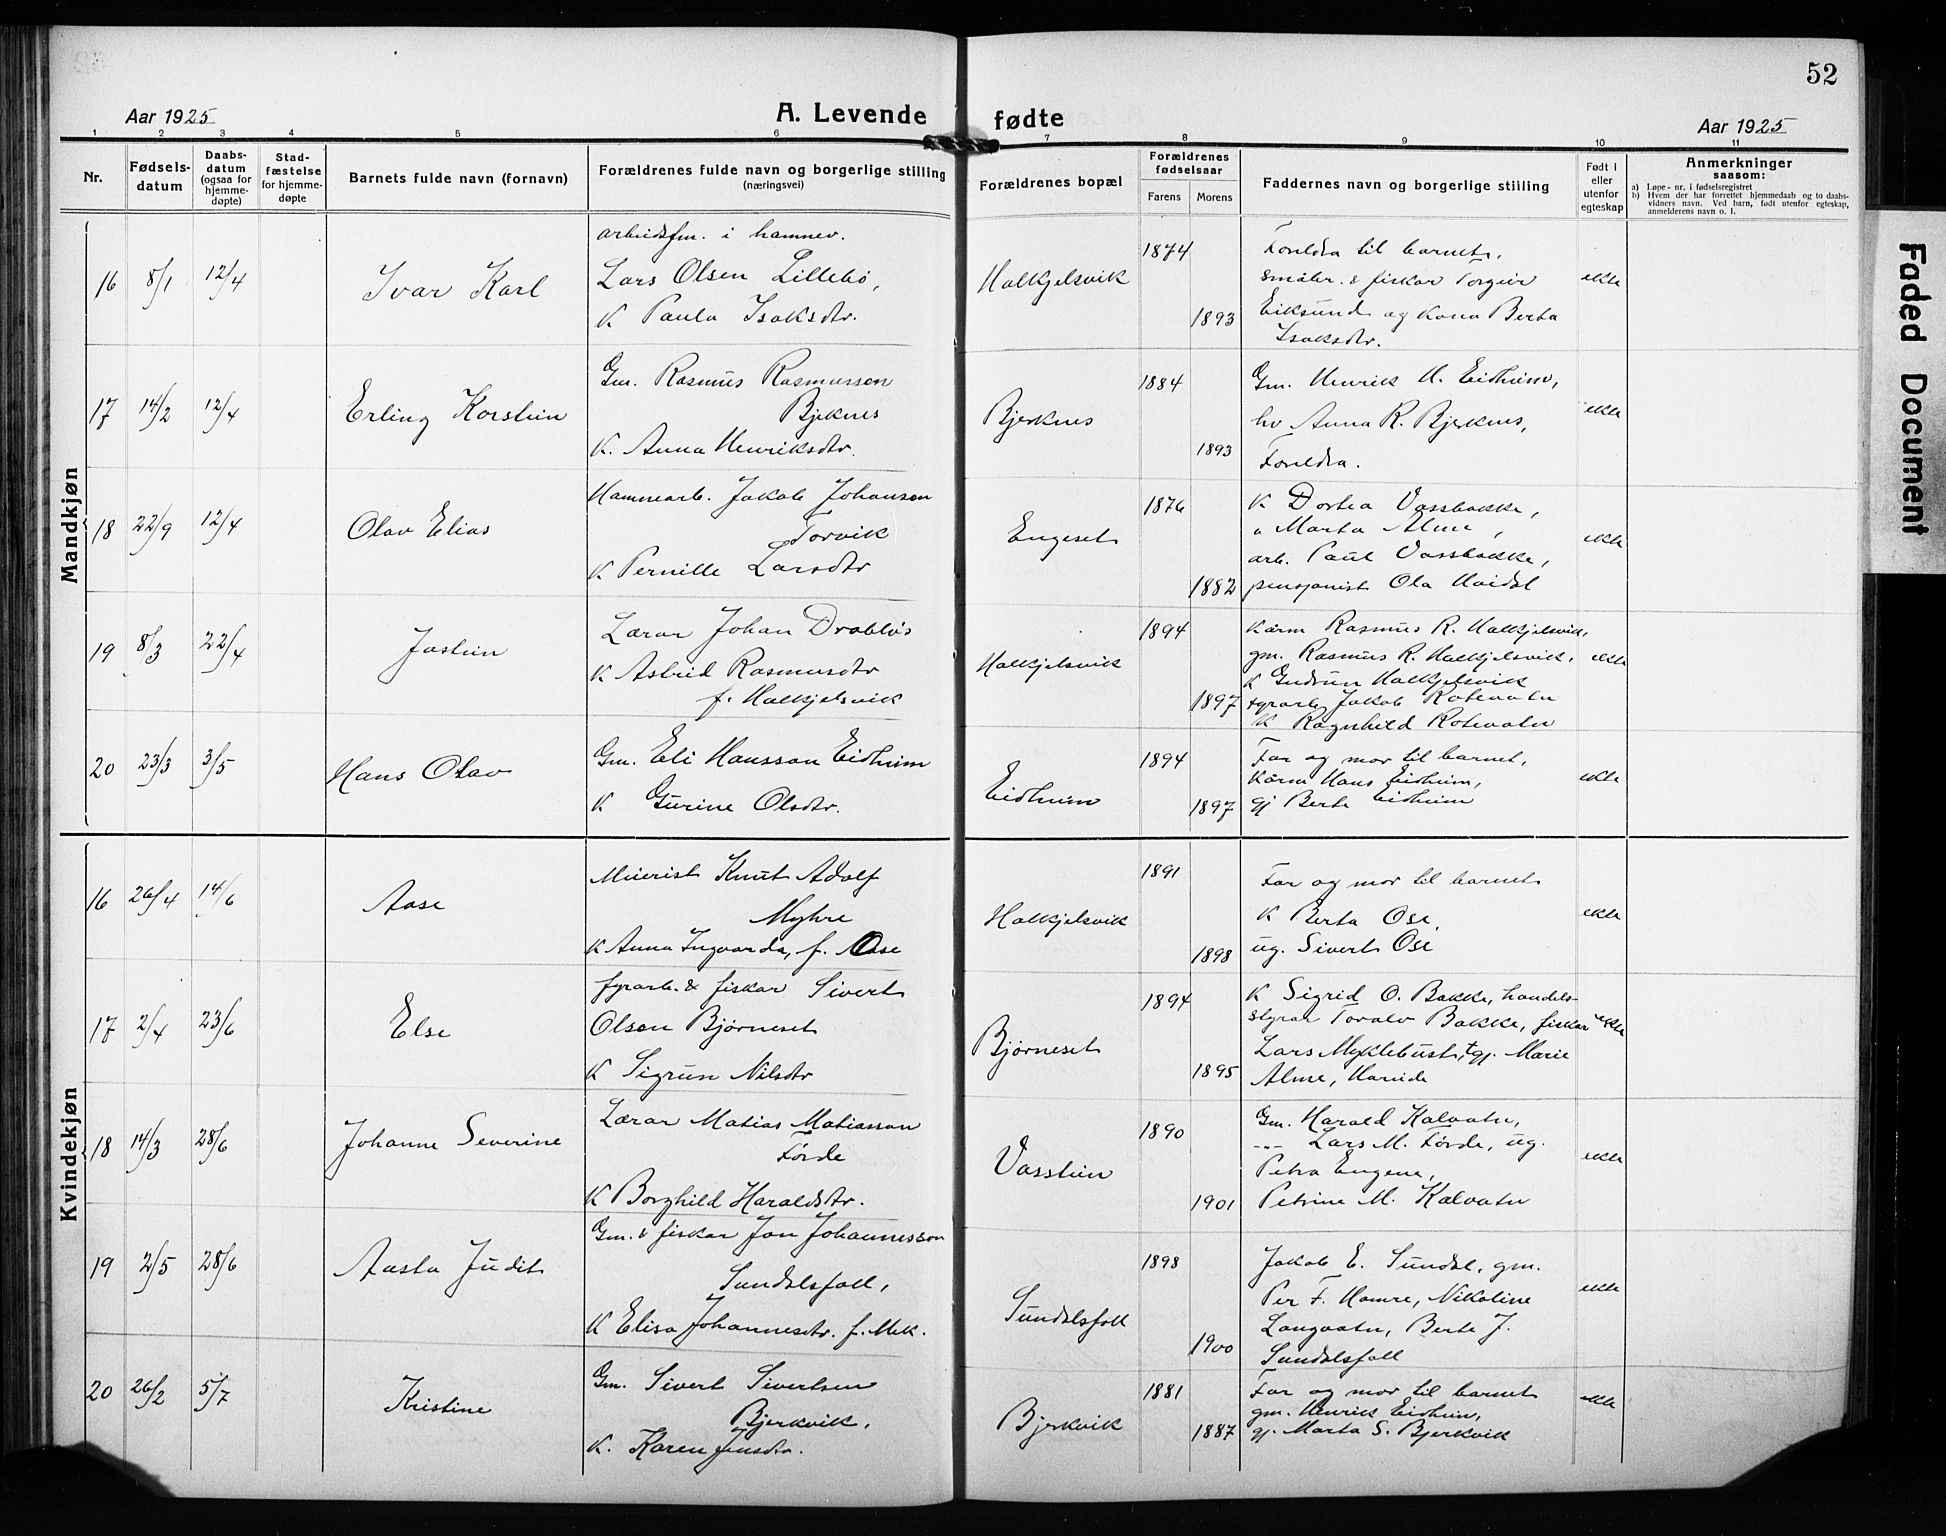 52
Aar 1925
A. Levende fødte
Aar 1925
1 2 3 4 5 6 7 8 9 10 11
Nr.
Fødsels-
datum
Daabs-
datum
(ogsaa for
hjemme-
døpte)
Stad-
fæstelse
for hjemme-
døpte
Barnets fulde navn (fornavn)
Forældrenes fulde navn og borgerlige stilling
(næringsvei)
Forældrenes bopæl
Forældrenes
fødselsaar
Farens
Morens
Faddernes navn og borgerlige stilling
Født i
eller
utenfor
egteskap
Anmerkninger
saasom:
a) Løpe-nr. i fødselsregistret
b) Hvem der har forrettet hjemmedaab og to daabs-
vidners navn. Ved barn, født utenfor egteskap,
anmelderens navn o. l.
Mandkjøn
16 8/1 12/4
Ivar Karl
arbeidsfm. i hamnev.
Lars Olsen Lillebø,
K Paula Isaksdtr.
Halkjelsvik
1874
1893
Foreldra til barnet,
småbr. & fiskar Torgeir
Eiksund og kona Berta
Isaksdtr.
ekte
17 14/2 12/4
Erling Korstein
Gm. Rasmus Rasmussen
Bjeknes
K. Anna Henriksdtr.
Bjerknes
1884
1893
Gm. Henrik H. Eidheim,
hv Anna R. Bjerknes,
Foreldra.
ekte
18 22/9 12/4
Olav Elias
Hamnearb. Jakob Johansen
Torvik
K Pernille Larsdtr
Engeset
1876
1882
K Dortea Vassbakke,
" Marta Alme,
arb. Paul Vassbakke,
pensjonist Ola Havdal
ekte
19 8/3 22/4
Jostein
Lærar Johan Drabløs
K Astrid Rasmusdtr
f. Halkjelsvik
Halkjelsvik
1894
1897
Kårm Rasmus R. Halkjelsvik,
gm. Rasmus R. Halkjelsvik,
K Gudrun Halkjelsvik
fyrarb. Jakob Rotevatn
K Ragnhild Rotevatn
ekte
20 23/3 3/5
Hans Olav
Gm. Eli Hansson Eidheim
K Gurine Olsdtr.
Eidheim
1894
1897
Far og mor til barnet,
Kårm Hans Eidheim,
gj Berte Eidheim
ekte
Kvindekjøn
16 26/4 14/6
Aase
Meierist Knut Adolf
Myhre
K Anna Ingvarda, f. Ose
Halkjelsvik
1891
1898
Far og mor til barnet
K Berta Ose,
ug. Sivert Ose
ekte
17 2/4 23/6
Else
fyrarb. & fiskar Sivert
Olsen Bjørneset
K Sigrun Nilsdtr
Bjørneset
1894
1895
K Sigrid O. Bakke, handels-
styrar Toralv Bakke, fiskar
Lars Myklebust, gj. Marie
Alme, Hareide
ekte
18 14/3 28/6
Johanne Severine
Lærar Matias Matiassen
Førde
K Borghild Haraldsdtr.
Vasstein
1890
1901
Gm. Harald Kalvatn,
--- Lars M. Førde, ug.
Petra Engene,
Petrine M. Kalvatn
ekte
19 2/5 28/6
Aasta Judit
Gm. & fiskar Jon Johannesson
Sundalsfoll,
K Elisa Johannesdtr. f. Mek.
Sundalsfoll
1898
1900
Jakob E. Sundal, gm.
Per F. Hamre, Nikoline
Langvatn, Berte J.
Sundalsfoll
ekte
20 26/2 5/7
Kristine
Gm. Sivert Sivertsen
Bjerkvik,
K. Karen Jensdtr.
Bjerkvik
1881
1887
Far og mor til barnet
gm. Henrik Eidheim,
gj. Marta S. Bjerkvik
ekte
Faded Document